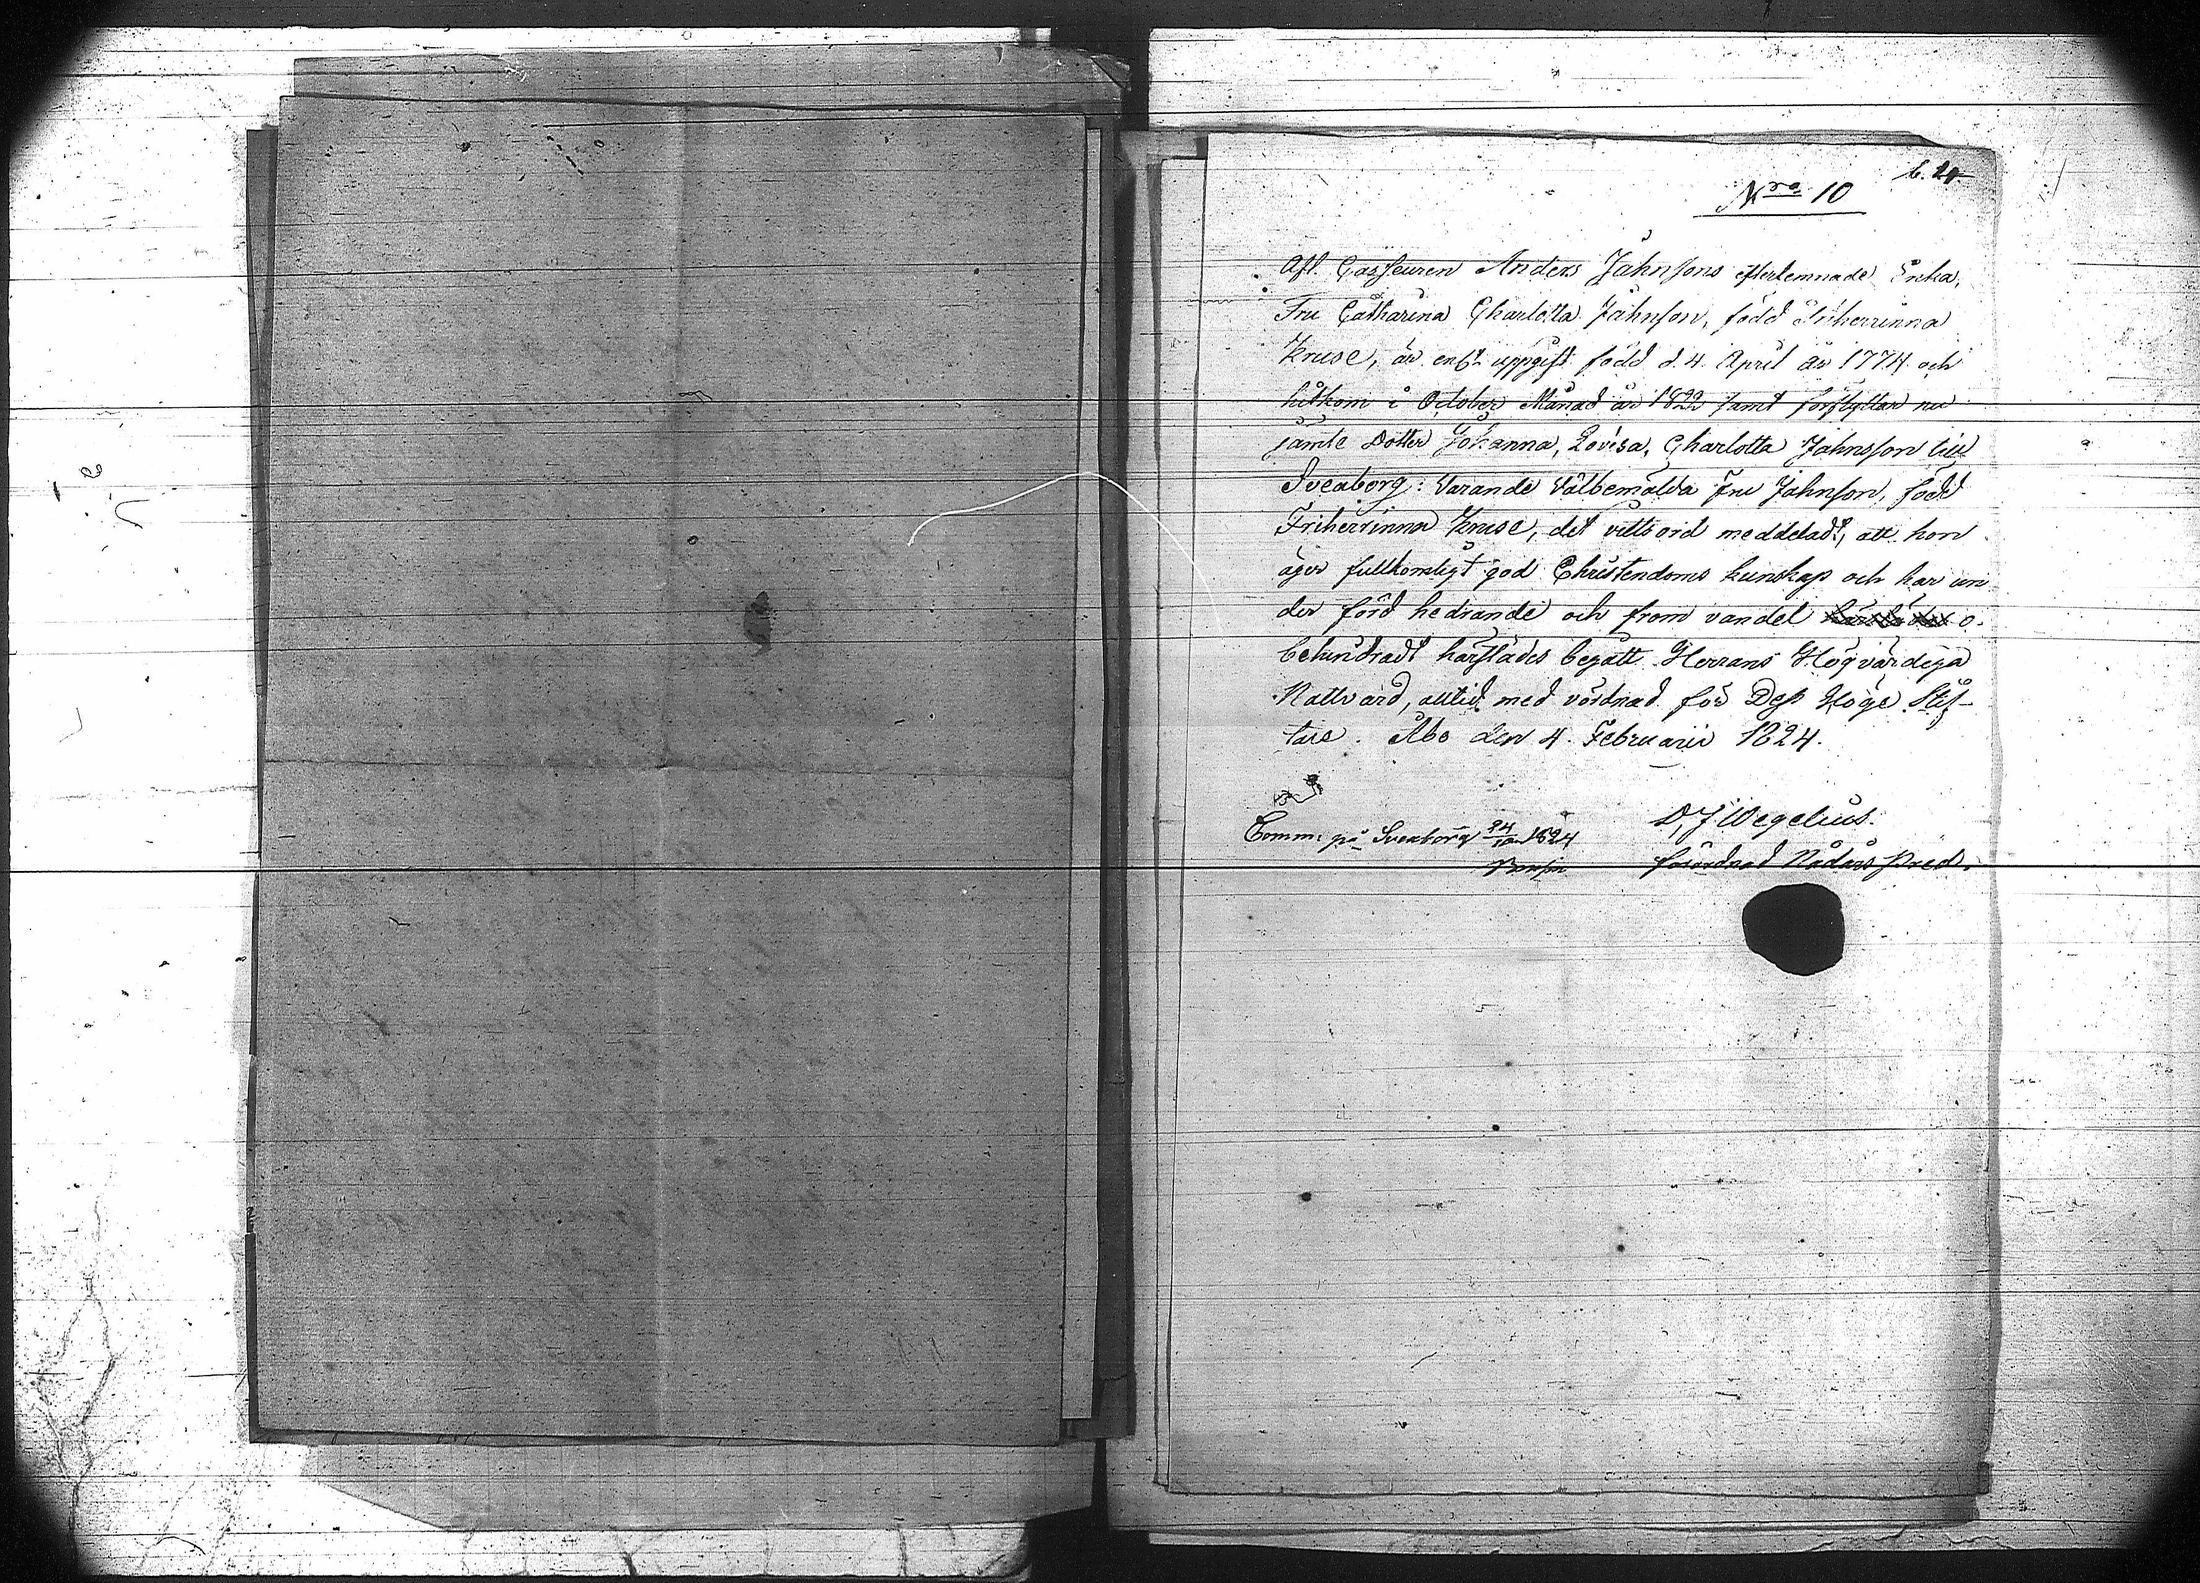 b. 24.
Nro 10
Afl. Casseuren Anders Jahnsons efterlemnade Enka,
Fru Catharina Charlotta Jahnson, född Friherrinna
Kruse, är enl. uppgift född d. 4. April år 1774 och
hitkom i October Månad år 1822 samt förflyttar nu
jämte Dotter Johanna, Lovisa, Charlotta Jahnsson till
Sveaborg: Varande Välbemälda Fru Jahnson, född
Friherrinna Kruse, det vittsord meddeladt, att hon
äger fullkomligt god Christendoms kunskap och har un
der förd hedrande och from vandel o-
behindradt härstädes begått Herrans Högvärdiga
Nattvard, alltid med vördnad för Dess Höge Stif-
tare. Åbo den 4. Februarii 1824.
DJ Wegelius.
förordnad Nådårs Pred.
Comm: på Sveaborg 24/10 1824